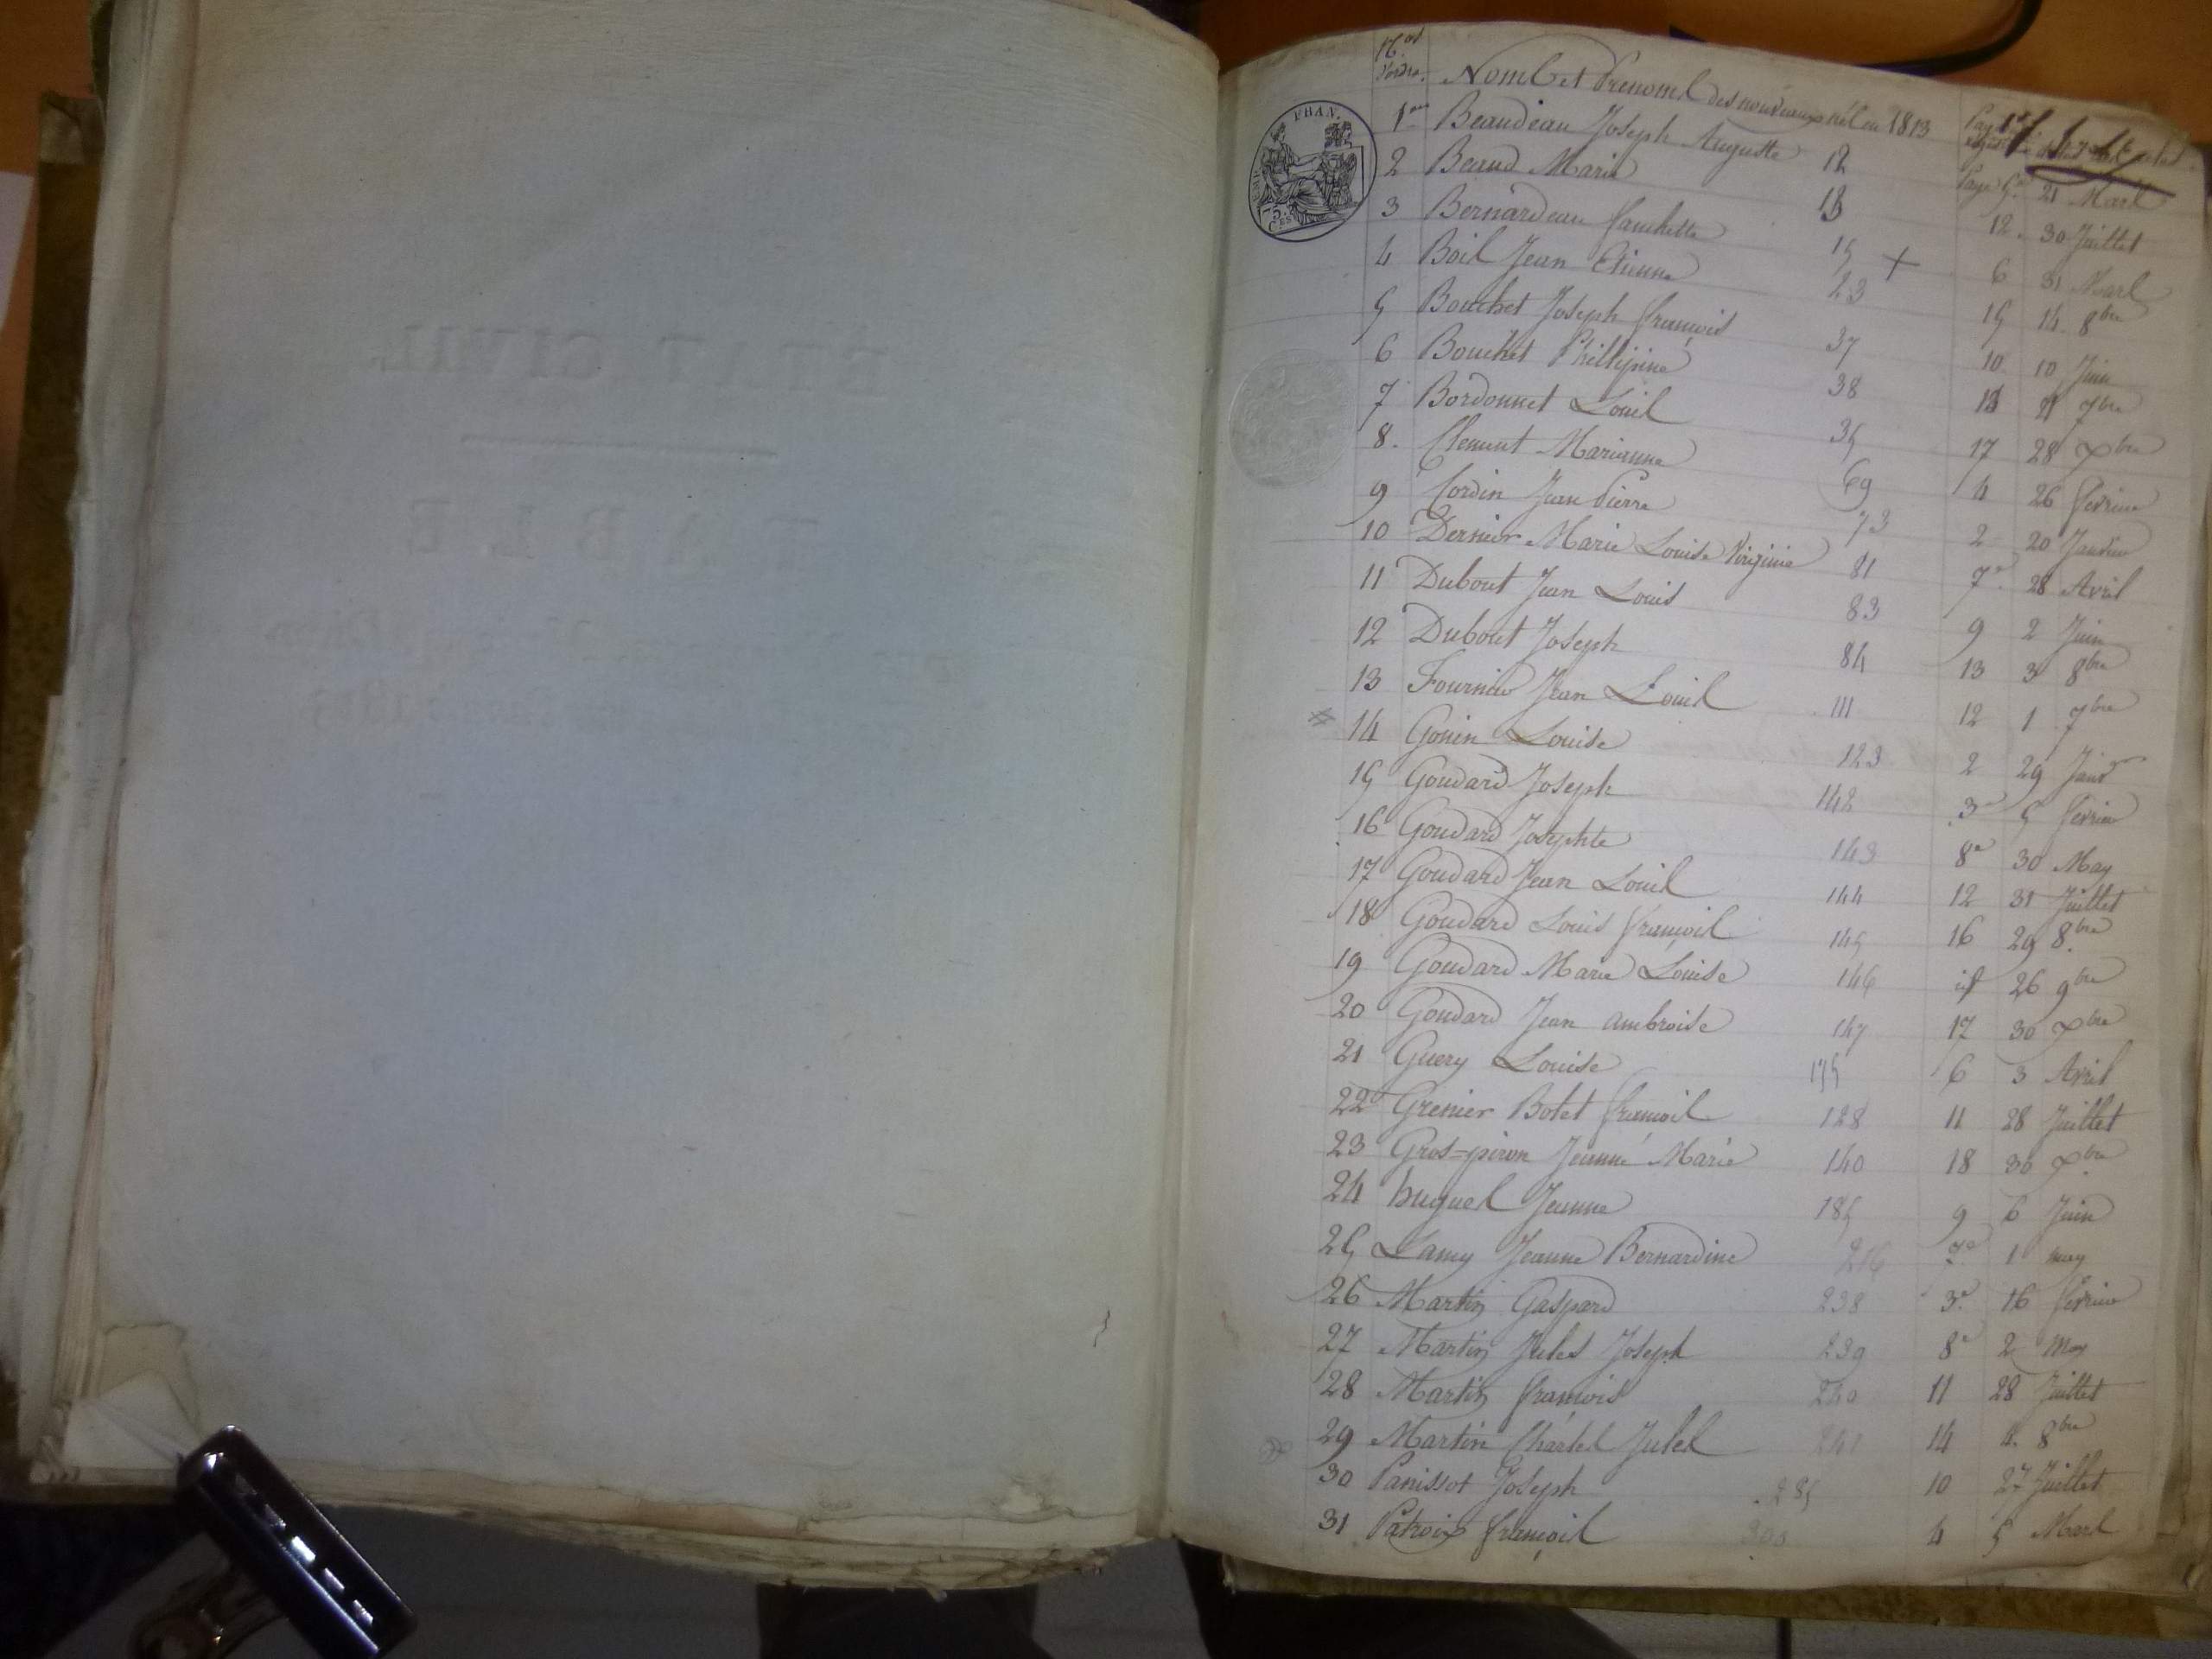 ETAT CIVIL
TABLE
N.os d'ordre. Noms et Prenoms des nouveaux nés en 1813
FRAN.
EMP.
75
1er Beaudeau Joseph Auguste 12 Page 5e 21 Mars
2 Beaud Marie 13 12. 30 Juillet
3 Bernardeau fanchette 15 + 6 31 Mars
4 Boil Jean Etienne 23 15 14 8bre
5 Bouchet Joseph françois 37 10 10 Juin
6 Bouchet Phillipine 38 13 21 7bre
7 Bordonnet Louis 35 17 28 xbre
8. Clement Marianne 69 4 26 fevrier
9 Cordin Jean Pierre 73 2 20 Janvier
10 Dernier Marie Louise Virginie 81 7e 28 Avril
11 Dubout Jean Louis 83 9 2 Juin
12 Dubout Joseph 84 13 3 8bre
13 Fournier Jean Louis 111 12 1 7bre
14 Gonin Louise 123 2 29 Janr
15 Goudard Joseph 142 3e 5 fevrier
16 Goudard Josephte 143 8e 30 May
17 Goudard Jean Louis 144 12 31 Juillet
18 Goudard Louis françois 145 16 29 8bre
19 Goudard Marie Louise 146 id 26 9bre
20 Goudard Jean ambroise 147 17 30 xbre
21 Guery Louise 175 6 3 Avril
22 Grenier Botet françois 128 11 28 Juillet
23 Gros=piron Jeanne Marie 140 18 30 xbre
24 huguel Jeanne 185 9 6 Juin
25 Lamy Jeanne Bernardine 216 7e 1 may
26 Martin Gaspard 238 3e 16 fevrier
27 Martin Jules Joseph 239 8e 2 May
28 Martin françois 240 11 28 Juillet
29 Martin Charles Jules 241 14 4 8bre
30 Panissot Joseph 285 10 27 Juillet
31 Patroix françois 300 4 5 Mars